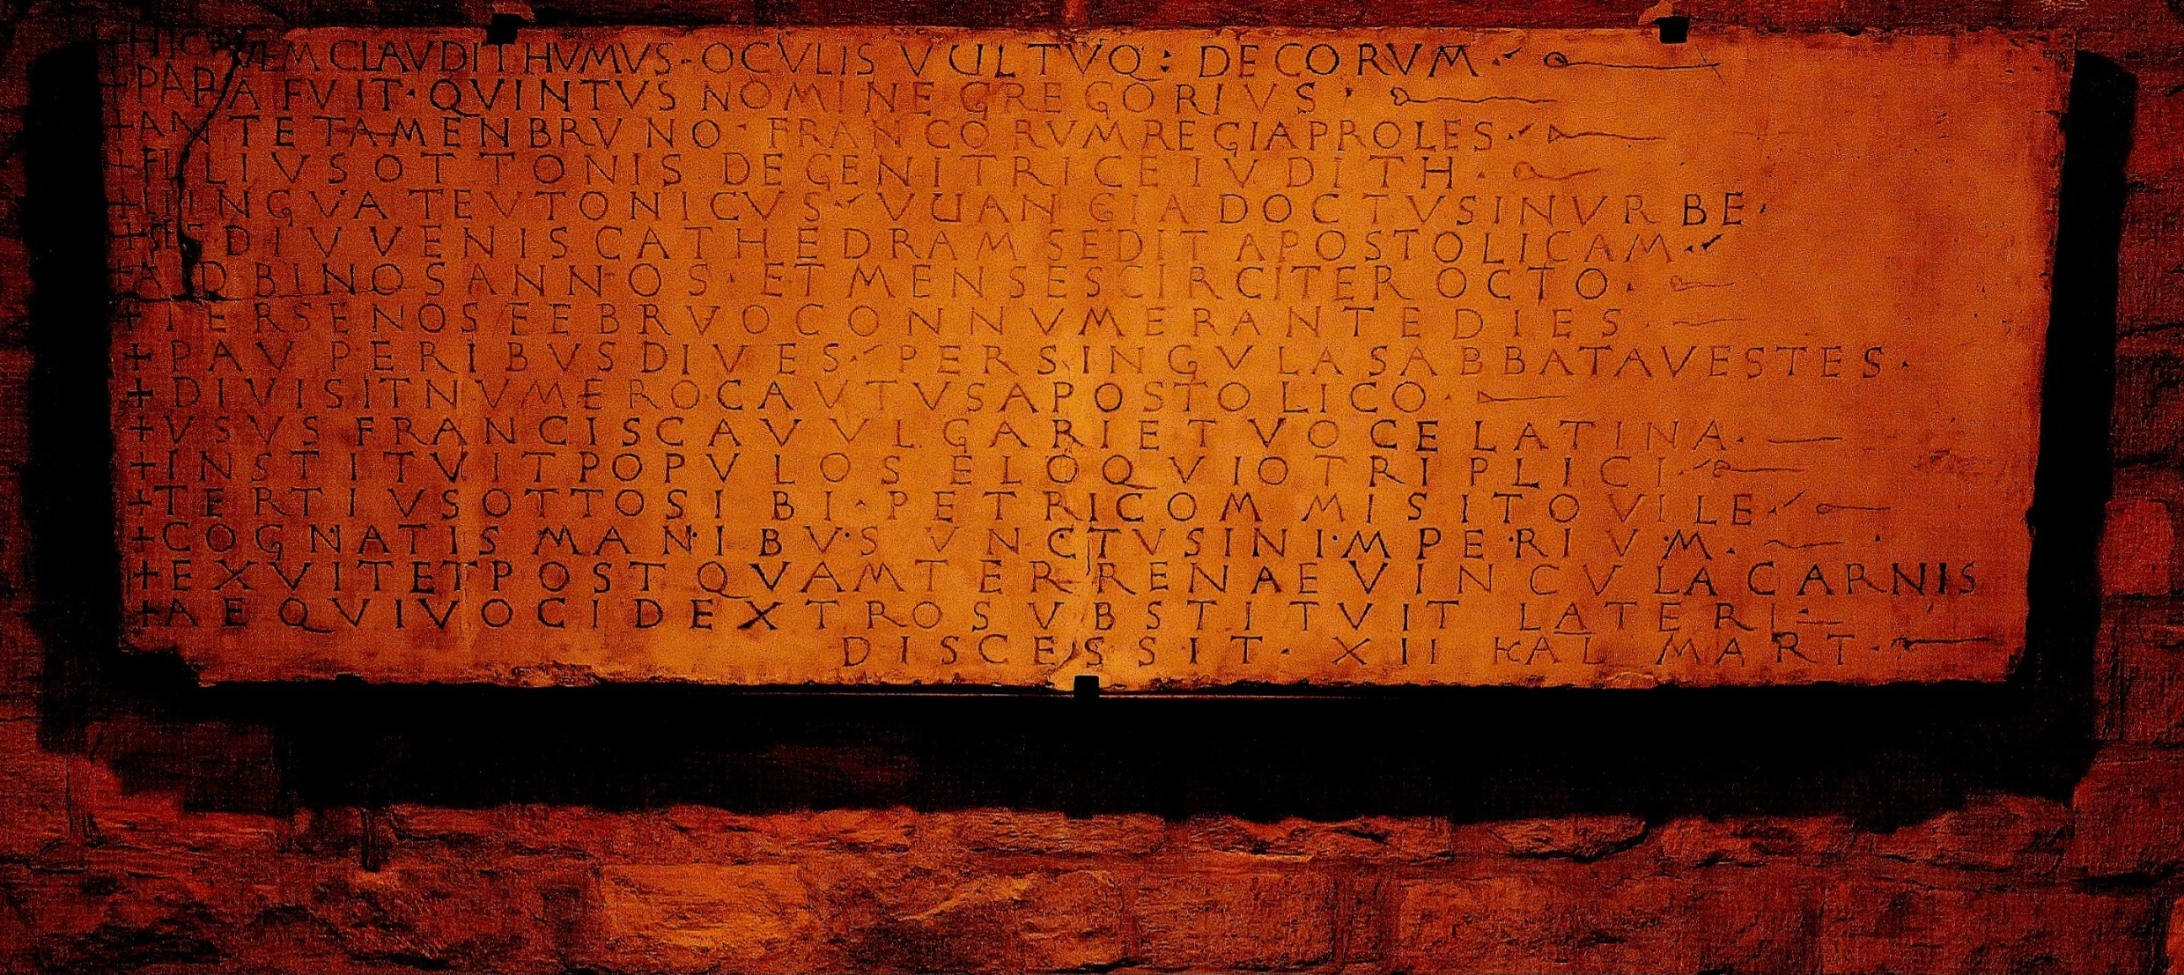 +HIC QVEM CLAVDIT HVMVS· OCVLIS VVLTVQ: DECORVM·
+PAPA FVIT· QVINTVS NOMINE GREGORIVS·
+ANTE TAMEN BRVNO· FRANCORVM REGIA PROLES·
+FILIVS OTTONIS DE GENITRICE IVDITH·
+LINGVA TEVTONICVS· VVANGIA DOCTVS IN VRBE·
+SED IVVENIS CATHEDRAM SEDIT APOSTOLICAM·
+AD BINOS ANNOS· ET MENSES CIRCITER OCTO·
+TER SENOS FEBRVO CONNVMERANTE DIES
+PAVPERIBVS DIVES· PER SINGVLA SABBATA VESTES·
+DIVISIT NVMERO CAVTVS APOSTOLICO·
+VSVS FRANCISCA VVLGARI ET VOCE LATINA·
+INSTITVIT POPVLOS ELOQVIO TRIPLICI·
+TERTIVS OTTO SIBI· PETRI COMMISIT OVILE·
+COGNATIS MANIBVS VNCTVS IN IMPERIVM·
+EXVIT ET POSTQVAM TERRENAE VINCVLA CARNIS
+AEQVIVOCI DEXTRO SVBSTITVIT LATERI
DISCESSIT· XII KAL MART·